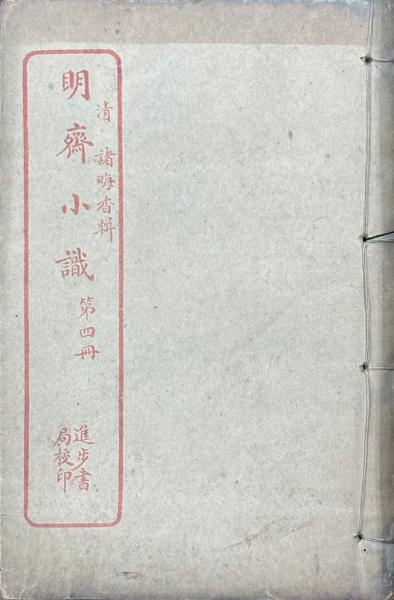 清 諸晦香輯
明齋小識 第四冊
進步書
局校印